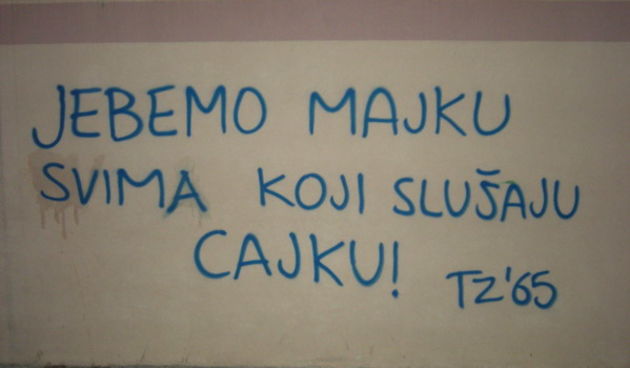 JEBEMO MAJKU
SVIMA KOJI SLUŠAJU
CAJKU!
TZ'65